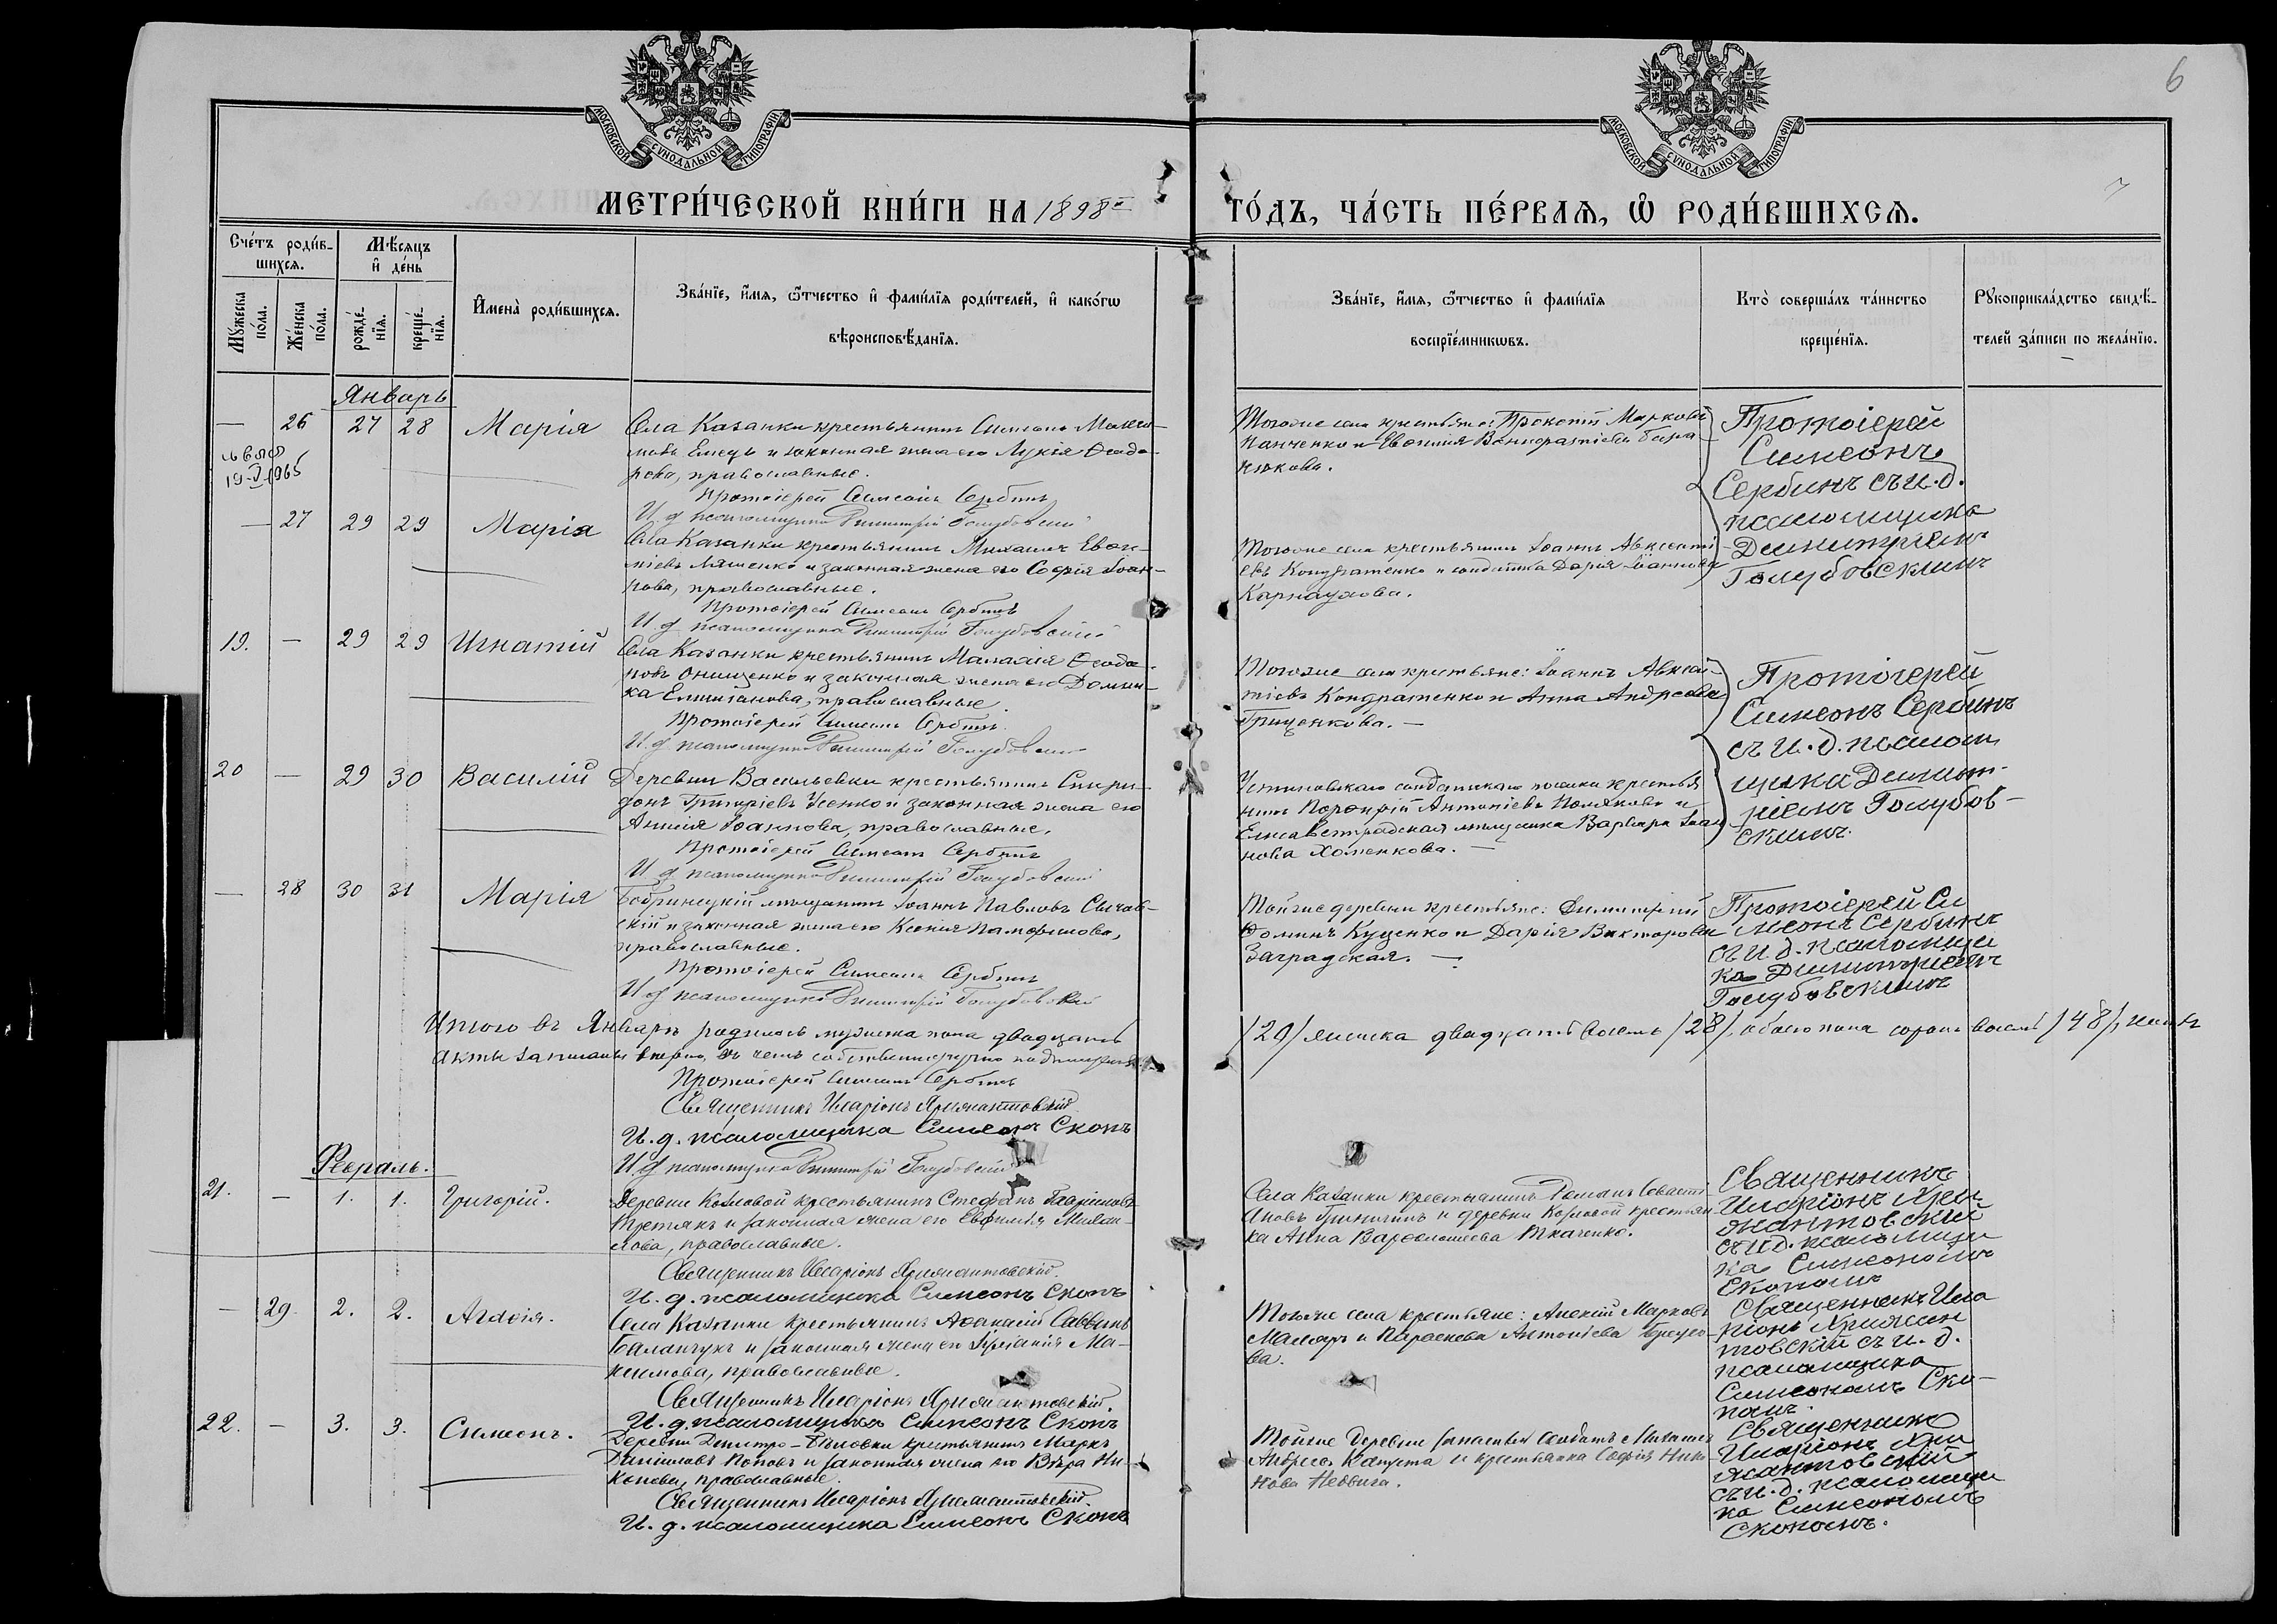 6
МОСКОВСКОЙ СѴНОДАЛЬНОЙ ТИПОГРАФІИ
МОСКОВСКОЙ СѴНОДАЛЬНОЙ ТИПОГРАФІИ
МЕТРИ́ЧЕСКОЙ КНИ́ГИ НА 1898й
ГО́ДЪ, ЧА́СТЬ ПЕ́РВАѦ, Ѽ РОДИ́ВШИХСѦ.
Сче́тъ роди́в-
шихсѧ.
Мꙋжеска по́ла.
Же́нска по́ла.
Мѣ́сѧцъ
и҆ де́нь
рожде́-нїѧ.
креще́-нїѧ.
И҆мена̀ роди́вшихсѧ.
Зва́нїе, и҆́мѧ, ѻ҆́тчество и҆ фами́лїѧ роди́телей, и҆ како́гѡ
вѣроисповѣ́данїѧ.
Зва́нїе, и҆́мѧ, ѻ҆́тчество и҆ фами́лїѧ
воспрїе́мникѡвъ.
Кто̀ соверша́лъ та́инство
креще́нїѧ.
Рꙋкоприкла́дство свидѣ́-
телей за́писи по жела́нїю.
Январь
— 26 27 28 Марія
Села Казанки крестьянинъ Симеонъ Макси-
мовъ Емецъ и законная жена его Лукія Ѳеодо-
рова, православные.
Протоіерей Симеонъ Сербинъ
И. д. псаломщика Димитрій Голубовскій
Тогоже села крестьяне: Прокопій Марковъ
Панченко и Евфимія
Протоіерей
Симеонъ
Сербинъ съ и. д.
псаломщика
Димитріемъ
Голубовскимъ
19-V-1965
— 27 29 29 Марія
Села Казанки крестьянинъ Михаилъ
Ляшенко и законная жена его Софія Іоан-
нова, православные.
Протоіерей Симеонъ Сербинъ
И. д. псаломщика Димитрій Голубовскій
Тогоже села крестьянинъ Іоаннъ Авксенті-
евъ Кондратенко и солдатка Дарія Іоаннова
Карнаухова.
19. — 29 29 Игнатій
Села Казанки крестьянинъ Малахія Ѳеодо-
ровъ Онищенко и законная жена его Домни-
ка православные.
Протоіерей Симеонъ Сербинъ
И. д. псаломщика Димитрій Голубовскій
Тогоже села крестьяне: Іоаннъ Авксен-
тіевъ Кондратенко и Анна Андреева
Грищенкова. —
Протоіерей
Симеонъ Сербинъ
съ и. д. псалом
щика Димит-
ріемъ Голубов-
скимъ.
20 — 29 30 Василій
Деревни Васильевки крестьянинъ Спири-
донъ Григоріевъ Усенко и законная жена его
Іоаннова, православные.
Протоіерей Симеонъ Сербинъ
И. д. псаломщика Димитрій Голубовскій
крестья
нинъ Порфирій Антоніевъ Поляковъ и
Елисаветградская мѣщанка Варвара Іоан
нова Хоменкова. —
— 28 30 31 Марія
Бобринецкій мѣщанинъ Іоаннъ Павловъ
скій и законная жена его Ксенія
православные.
Протоіерей Симеонъ Сербинъ
И. д. псаломщика Димитрій Голубовскій
Тойже деревни крестьяне: Димитрій
Ѳоминъ Куценко и Дарія Викторова
Заградская. —
Протоіерей Си
меонъ Сербинъ
съ и. д. псаломщи
ка Димитріемъ
Голубовскимъ
Итого въ Январѣ родилось мужеска пола двадцать /20/ женска двадцать восемь /28/, обоего пола сорокъ восемь /48/,
акты записаны вѣрно, въ чемъ собственноручно подписуемся
Протоіерей Симеонъ Сербинъ
Священникъ Иларіонъ Хржантовскій
И. д. псаломщика Симеонъ Скопъ
И. д. псаломщика Димитрій Голубовскій
Февраль.
21. — 1. 1. Григорій.
Деревни Козловой крестьянинъ Стефанъ Гавриловъ
Третякъ и законная жена его Евфимія Михаи-
лова, православные.
Священникъ Иларіонъ Хржантовскій.
И. д. псаломщика Симеонъ Скопъ
Села Казанки крестьянинъ Романъ Севасті-
ановъ и деревни Козловой крестьян-
ка Анна Варѳоломеева Ткаченко.
Священникъ
Иларіонъ Хрж
жантовскій
съ и. д. псаломщи
ка Симеономъ
Скопомъ
— 29. 2. 2. Агаѳія.
Села Казанки крестьянинъ Аѳанасій Саввинъ
Баланчукъ и законная жена его Іуліанія Ма-
ксимова, православные.
Священникъ Иларіонъ Хржантовскій.
И. д. псаломщика Симеонъ Скопъ
Тогоже села крестьяне: Алексій Марковъ
Маляръ и Параскева Антоніева
ва.
Священникъ Ила
ріонъ Хржжан
товскій съ и. д.
псаломщика
Симеономъ Ско-
помъ.
22. — 3. 3. Симеонъ.
Деревни Дмитро-Бѣловки крестьянинъ Маркъ
Даниловъ Поповъ и законная жена его Вѣра Ни-
конова, православные.
Священникъ Иларіонъ Хржантовскій.
И. д. псаломщика Симеонъ Скопъ
Тойже деревни запасный солдатъ Михаилъ
Андреевъ Капуста и крестьянка Софія Нико
нова
Священникъ
Иларіонъ Хрж
жантовскій
съ и. д. псаломщи
ка Симеономъ
Скопомъ.